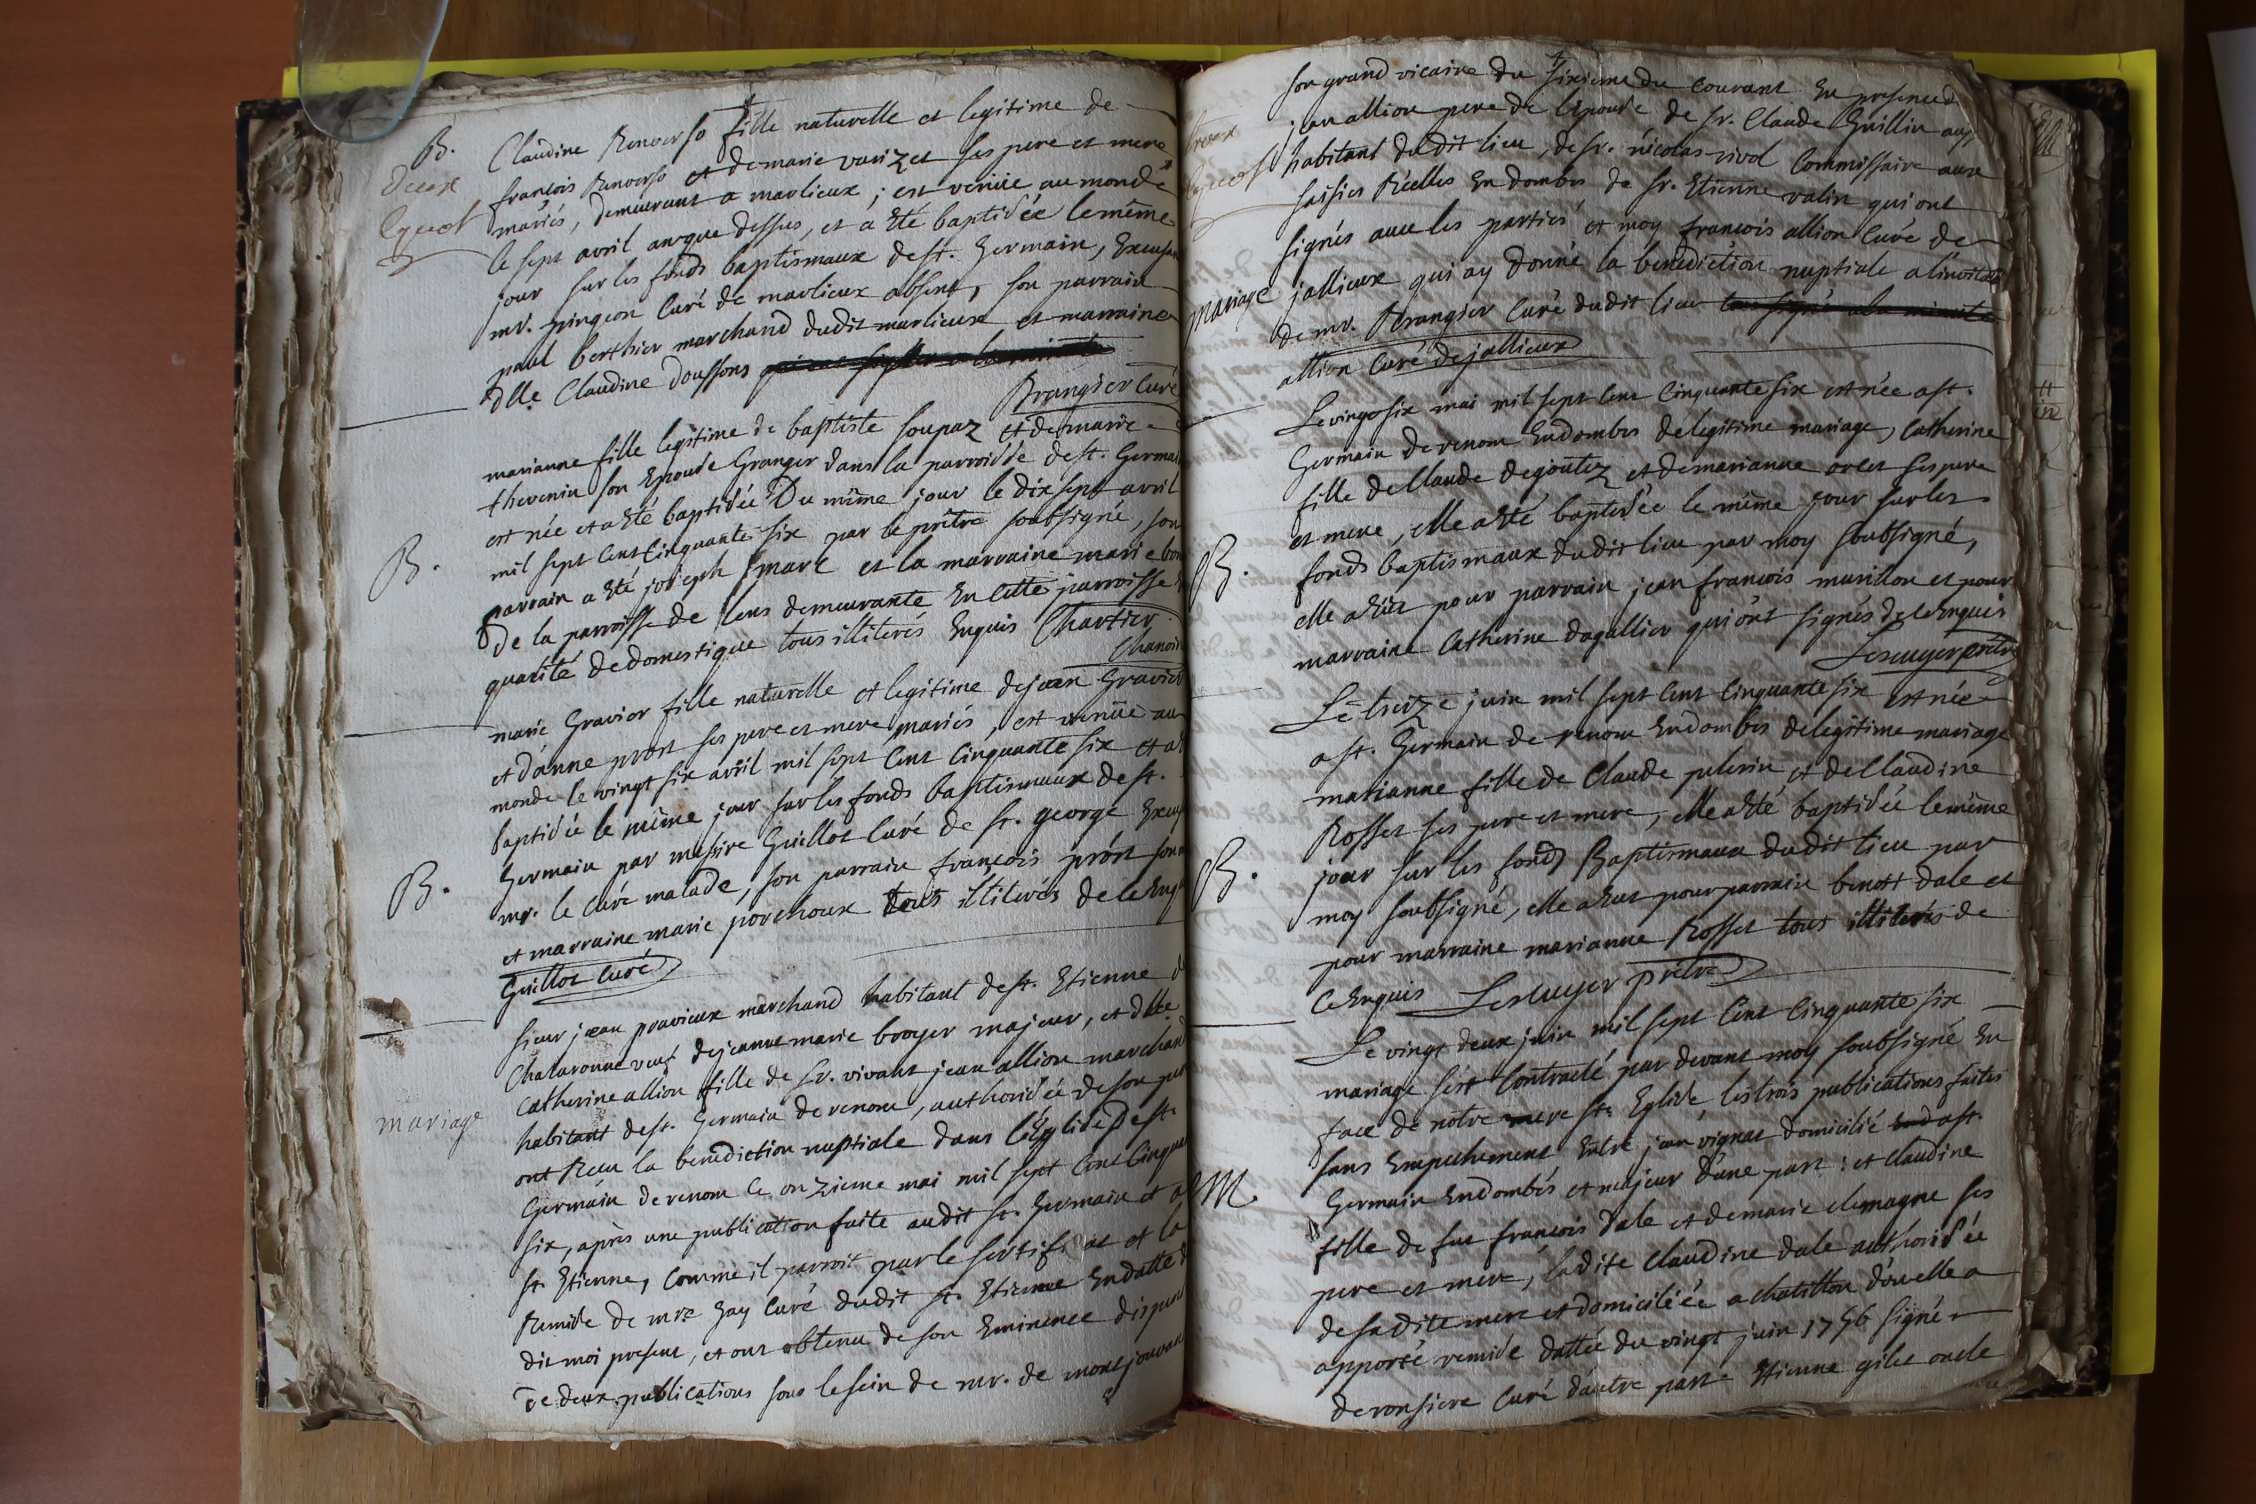 B. Claudine Renverso fille naturelle et legitime de
françois Renverso et de marie varizet ses pere et mere
mariés, demeurant a marlieux; est venüe au monde
le sept avril an que dessus, et a Eté baptisée le même
jour sur les fonds baptismaux de st. Germain, Excusant
mr. pingeon Curé de marlieux absent, son parrain
paul berthier marchand dudit marlieux et marraine
dlle Claudine doussons
Brangier Curé
marianne fille legitime de baptiste soupaz et de marie
thevenin son Epouse Granger dans la parroisse de st. Germain
est née et a Eté baptisée Du même jour le dix sept avril
mil sept cent cinquante six par le prêtre soubsigné, son
B. parrain a Eté joseph marc et la marraine marie
De la parroisse de lens demeurante En cette parroisse
qualité de domestique tous illiterés Enquis Chartier
Chanoi
marie Gravier fille naturelle et legitime de jean Gravier
et d'anne prost ses pere et mere mariés, est venüe au
monde le vingt six avril mil sept cent cinquante six et a
baptisée le même jour sur les fonds baptismaux de st.
Germain par messire Guillot Curé de st. george
B. mr. le Curé malade, son parrain françois prost
et marraine marie porchoux tous illiterés de ce
Guillot Curé
sieur jean pravieux marchand habitant de st. Etienne
Chalaronne veuf de jeanne marie booyer majeur, et dlle
Catherine allion fille de sr. vivant jean allion marchand
mariage habitant de st. Germain de renom, authorisée de son
ont Reçu la benediction nuptiale dans l'Eglise de st.
Germain de renom le onzieme mai mil sept cent cinquante
six, après une publication faite audit st. Germain et a
st. Etienne, Comme il parroit par le sertificat et la
Remise de mre Gay Curé dudit st. Etienne En datte
dit moi present, et ont obtenu de son Eminence
de deux publications sous le sein de mr. de montjouvent
son grand vicaire du sixieme du courant En presence de
jean allion pere de l'Epouse de sr. Claude Guillin
habitant dudit lieu, de sr. nicolas rivol Commissaire aux
saisies Réelles En dombes de sr. Etienne valin qui ont
signés avec les parties et moy françois allion Curé de
mariage jallieux qui ay donné la benediction nuptiale a
de mr. Brangier Curé dudit lieu
allion Curé de jallieux
Le vingt six mai mil sept cent cinquante six est née a st.
Germain de renom En dombes de legitime mariage, Catherine
fille de Claude degoutez et de marianne orlet ses pere
et mere, elle a Eté baptisée le même jour sur les
B. fonds baptismaux dudit lieu par moy soubsigné,
elle a Eut pour parrain jean françois murillon et pour
marraine Catherine dagallier qui ont signés de ce Enquis
Lescuyer prêtre
Le treize juin mil sept cent cinquante six est née
a st. Germain de renom En dombes de legitime mariage
marianne fille de Claude pelerin et de Claudine
Rosset ses pere et mere, elle a Eté baptisée le même
B. jour sur les fonds Baptismaux dudit lieu par
moy soubsigné, elle a Eut pour parrain benoit dale et
pour marraine marianne Rosset tous illiterés de
ce Enquis Lescuyer prêtre
Le vingt deux juin mil sept cent cinquante six
mariage s'est Contracté par devant moy soubsigné En
face de notre mere ste Eglise, les trois publications faites
sans Empechement Entre jean vignat domicilié a st.
M. Germain En dombes et majeur d'une part: et Claudine
fille de feu françois dale et de marie clemagne ses
pere et mere, ladite Claudine dale authorisée
de sadite mere et domiciliée a chatillon d'ou elle a
apporté remise dattée du vingt juin 1756 signé
de ronsiere Curé d'autre part Etienne gilet oncle